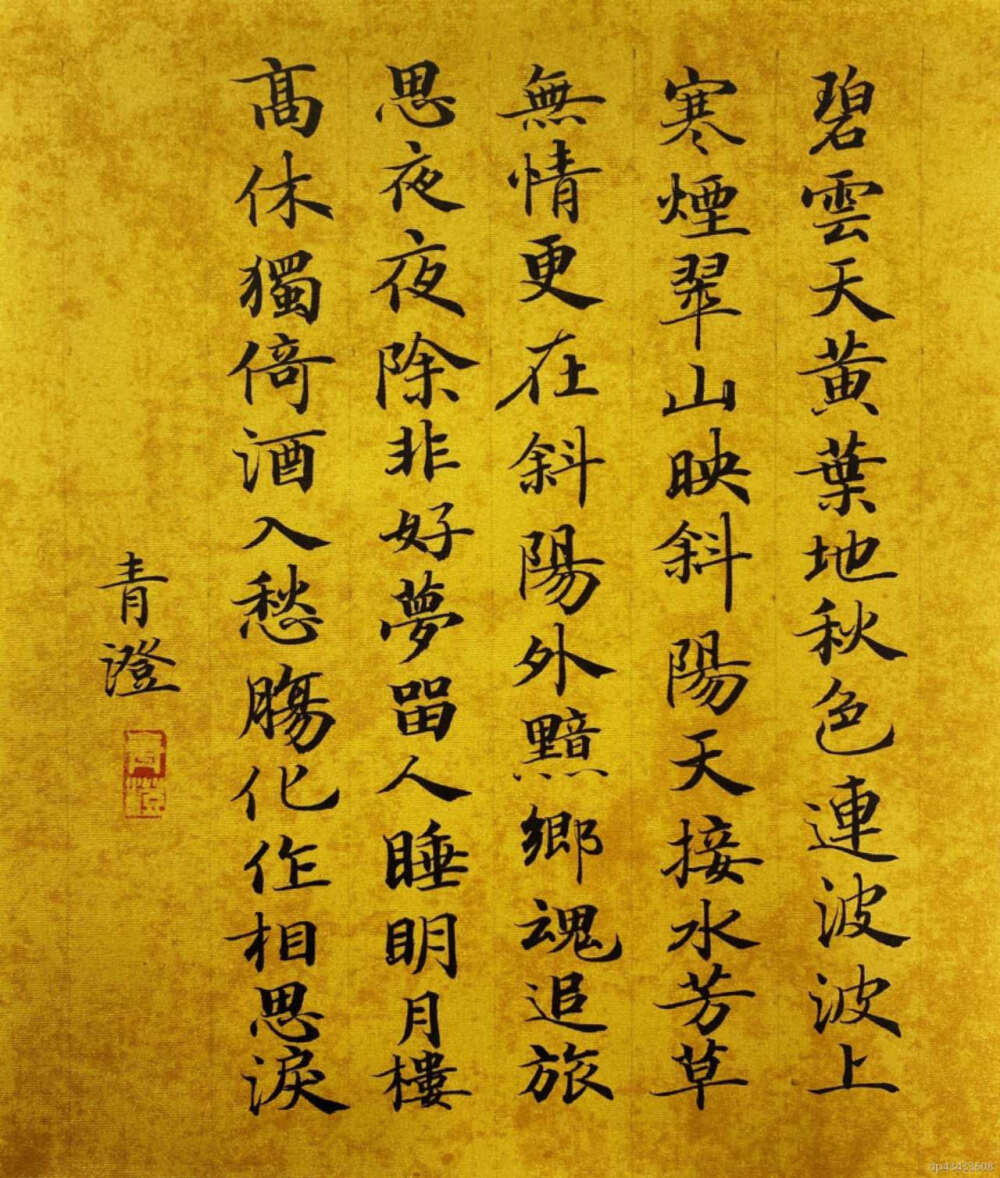 碧雲天黄葉地秋色連波波上
寒煙翠山映斜陽天接水芳草
無情更在斜陽外黯鄉魂追旅
思夜夜除非好夢留人睡明月樓
高休獨倚酒入愁腸化作相思淚
青澄